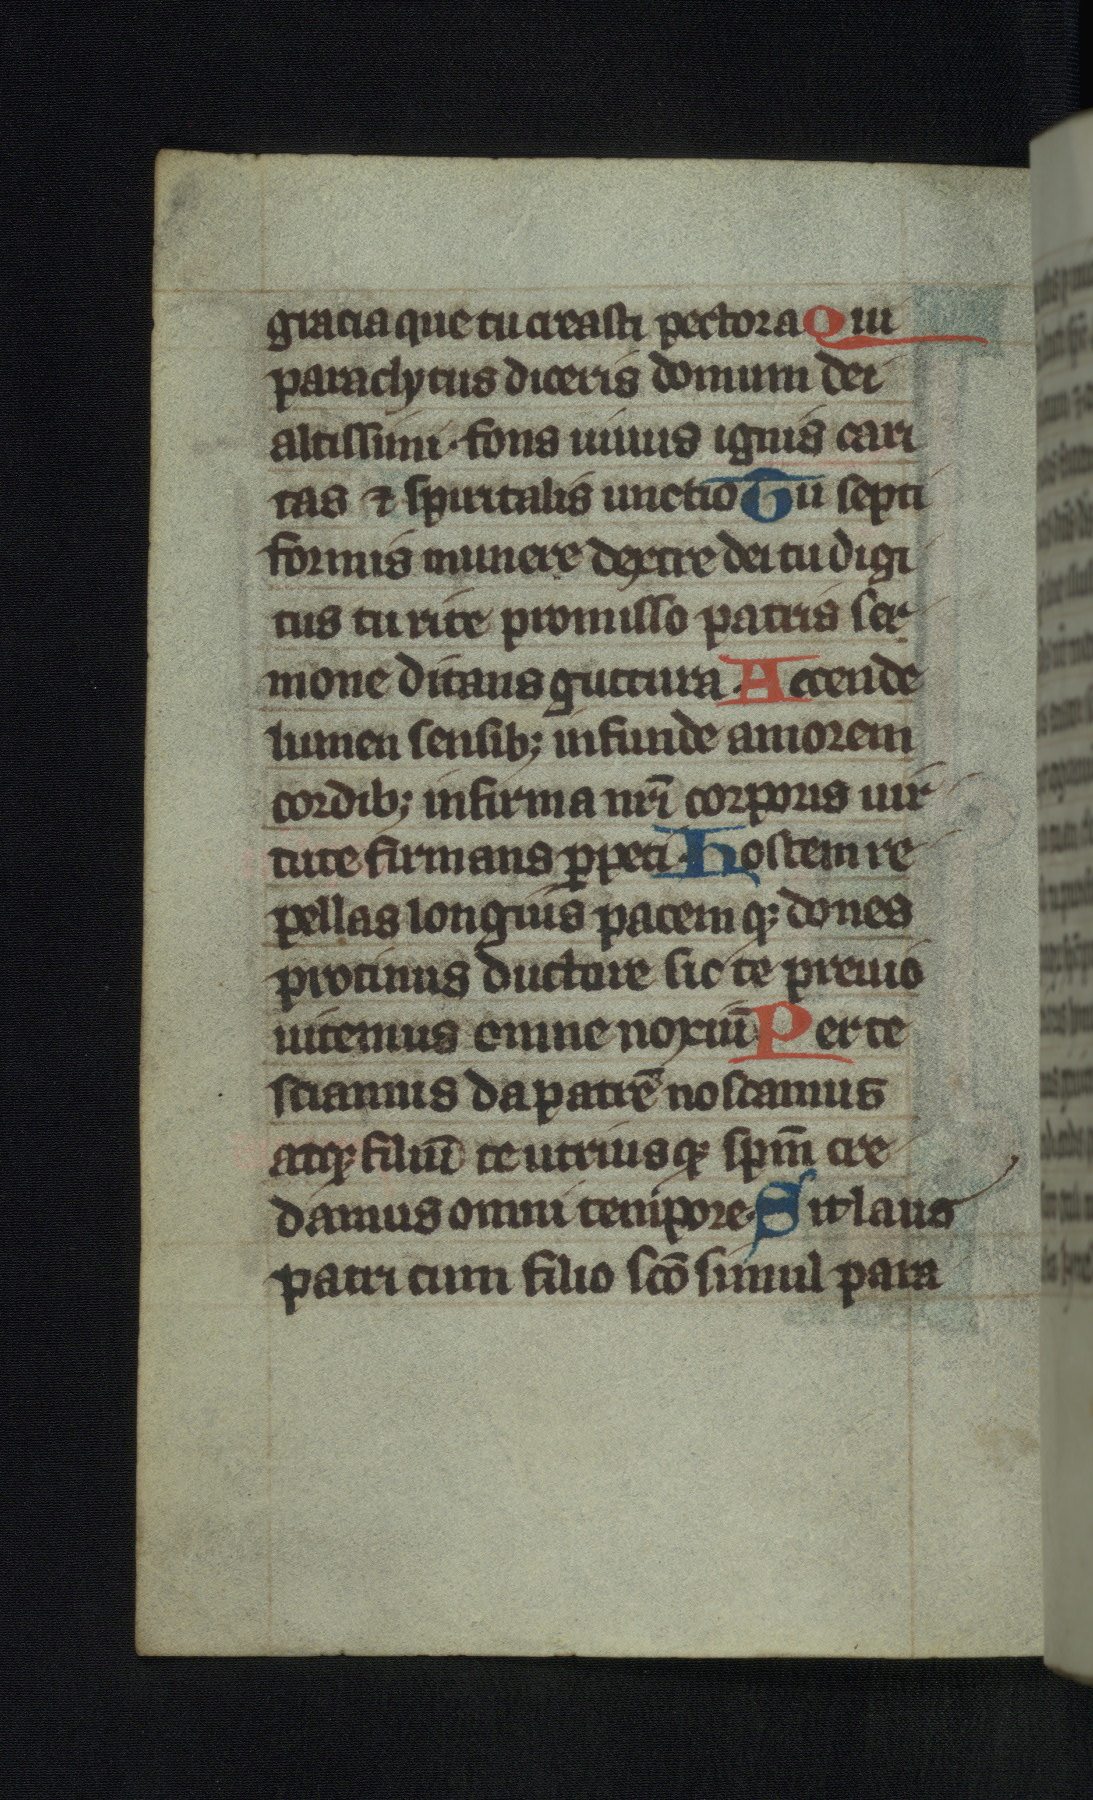 gracia que tu creasti pectora Qui
paraclytus diceris domum dei
altissimi · fons uiuus ignis cari
tas ⁊ spiritalis unctio Tu septi
formis munere dextre dei tu digi
tus tu rite promisso patris ser
mone ditans guttura · Accende
lumen sensib; infunde amorem
cordib; infirma nr̄i corporis uir
tute firmans ꝑpeti · Hostem re
pellas longius pacem q; dones
protinus ductore sic te preuio
uitemus omne noxiū Per te
sciamus da patrē noscamus
atq; filiū te utriusq; sp̄m cre
damus omni tempore · Sit laus
patri cum filio sc̄o simul para